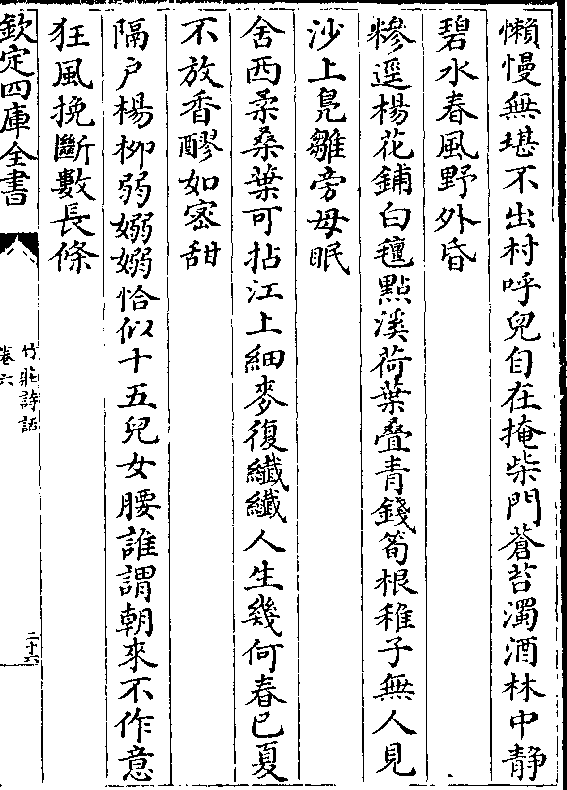 懶慢無堪不出村呼兒自在掩柴門蒼苔濁酒林中静
碧水春風野外昏
糝逕楊花鋪白氊點溪荷葉疊青錢筍根稚子無人見
沙上鳧雛旁母眠
舍西柔桑葉可拈江上細麥復纎纎人生幾何春已夏
不放香醪如蜜甜
隔户楊柳弱嫋嫋恰似十五兒女腰誰謂朝來不作意
狂風挽斷數長條
欽定四庫全書
竹莊詩話
卷六
二十六